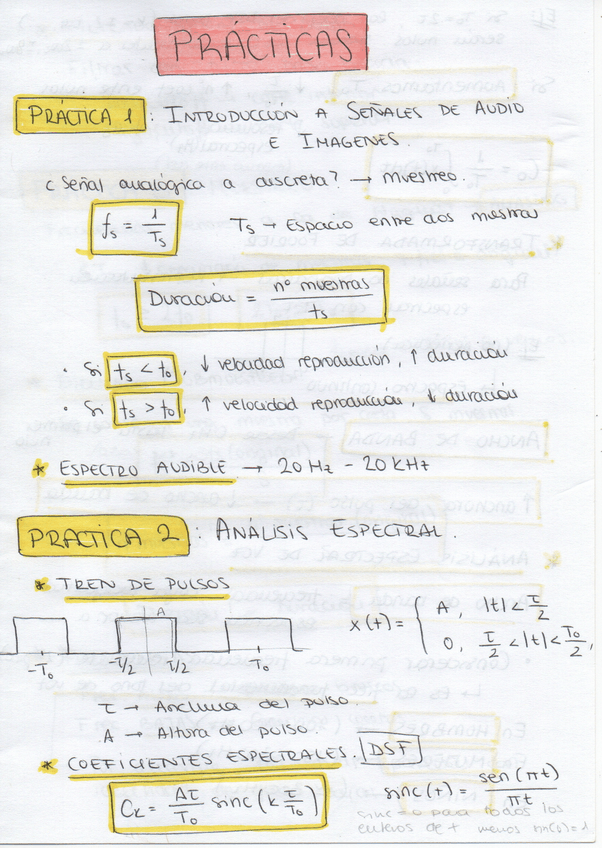 PRÁCTICAS
PRÁCTICA 1: INTRODUCCIÓN A SEÑALES DE AUDIO
E IMAGENES.
¿ Señal analógica a discreta? → muestreo.
fs = 1/Ts   Ts → Espacio entre dos muestras
Duración = nº muestras / ts
· Si ts < to, ↓ velocidad reproducción, ↑ duración
· Si ts > to, ↑ velocidad reproduccion, ↓ duración
* ESPECTRO AUDIBLE → 20 Hz - 20 kHz
PRACTICA 2: ANÁLISIS ESPECTRAL.
* TREN DE PULSOS
A
x(t) = { A, |t| < τ/2
0, τ/2 < |t| < To/2,
-To   -τ/2   τ/2   To
τ → Anchura del pulso.
A → Altura del pulso.
* COEFICIENTES ESPECTRALES. DSF
Ck = Aτ/To sinc (k τ/To)   sinc(t) = sen(πt)/πt
sinc=0 para todos los
enteros de t menos sinc(0)=1